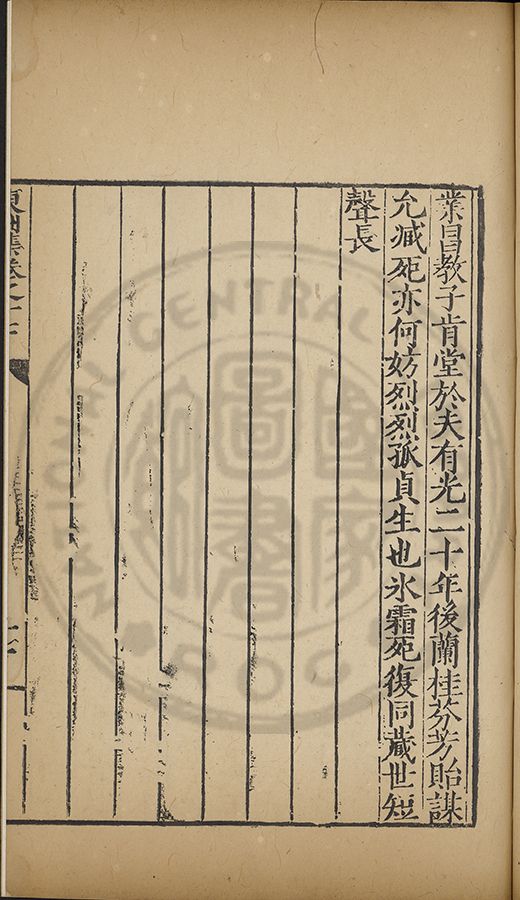 業昌教子肯堂於夫有光二十年後蘭桂芬芳貽謀
允臧死亦何妨烈烈孤貞生也氷霜死復同藏世短
聲長
東洲集卷之十
CENTRAL
國家圖書